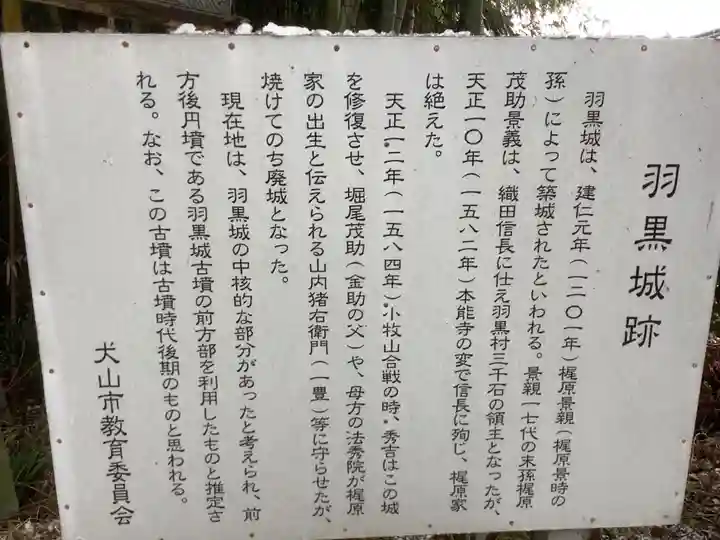 羽黒城跡
羽黒城は、建仁元年(一二〇一年)梶原景親(梶原景時の
孫)によって築城されたといわれる。景親一七代の末孫梶原
茂助景義は、織田信長に仕え羽黒村三千石の領主となったが、
天正一〇年(一五八二年)本能寺の変で信長に殉じ、梶原家
は絶えた。
天正一二年(一五八四年)小牧山合戦の時、秀吉はこの城
を修復させ、堀尾茂助(金助の父)や、母方の法秀院が梶原
家の出生と伝えられる山内猪右衛門(一豊)等に守らせたが、
焼けてのち廃城となった。
現在地は、羽黒城の中核的な部分があったと考えられ、前
方後円墳である羽黒城古墳の前方部を利用したものと推定さ
れる。なお、この古墳は古墳時代後期のものと思われる。
犬山市教育委員会